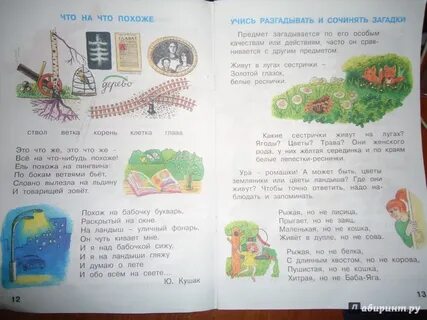 ЧТО НА ЧТО ПОХОЖЕ
ГЛАВА 1
дерево
ствол ветка корень клетка глава
Это что же, это что же -
Всё на что-нибудь похоже!
Ель похожа на пингвина
По бокам ветвями бьёт,
Словно вылезла на льдину
И товарищей зовёт.
Похож на бабочку букварь,
Раскрытый на окне.
На ландыш – уличный фонарь,
Он чуть кивает мне.
И я над бабочкой сижу,
И я на ландыши гляжу
И думаю о лете
И обо всём на свете...
Ю. Кушак
12
УЧИСЬ РАЗГАДЫВАТЬ И СОЧИНЯТЬ ЗАГАДКИ
Предмет загадывается по его особым
качествам или действиям, часто он срав-
нивается с другим предметом.
Живут в лугах сестрички -
Золотой глазок,
белые реснички.
Какие сестрички живут на лугах?
Ягоды? Цветы? Трава? Они женского
рода, у них жёлтая серединка и по краям
белые лепестки-реснички.
Ура - ромашки! А может быть, цветы
земляники или цветы ландыша? Где они
живут? Чтобы точно ответить, надо на-
блюдать и запоминать.
Рыжая, но не лисица,
Прыгает, но не заяц,
Маленькая, но не кошка,
Живёт в дупле, но не сова.
Рыжая, но не белка,
С длинным хвостом, но не корова,
Пушистая, но не кошка,
Хитрая, но не Баба-Яга.
13
Лабиринт.ру